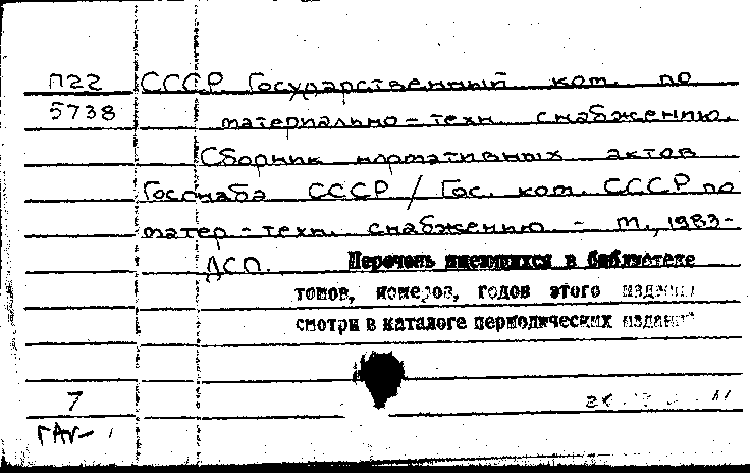 П22 СССР Государственный ком. по
5738 материально-техн. снабжению.
Сборник нормативных актов
Госснаба СССР / Гос. ком. СССР по
матер-техн. снабжению. - М., 1983-
ДСП. Перечень имеющихся в библиотеке
томов, номеров, годов этого издания
смотри в каталоге периодических изданий
7